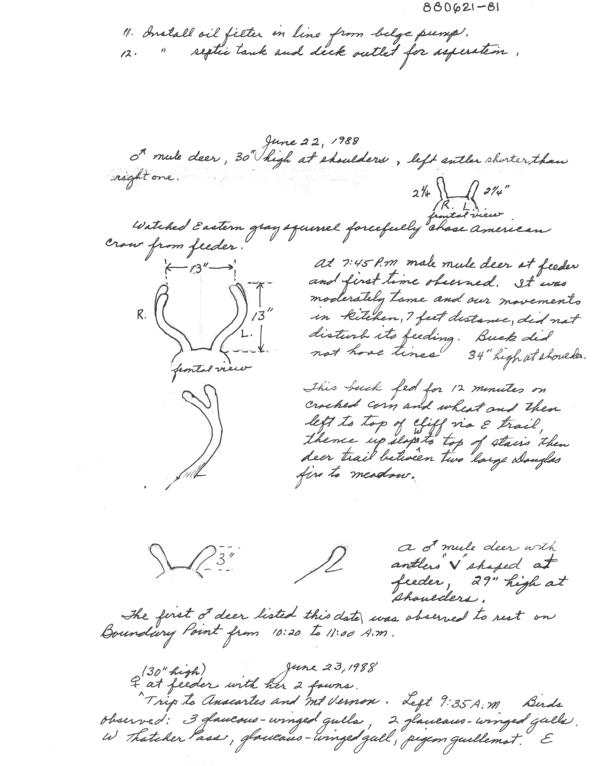 880621-81
11. Install oil filter in line from belge pump.
12. " septic tank and deck outlet for asperation.
June 22, 1988
♂ mule deer, 30" high at shoulders, left antler shorter than
right one.
2 1/4 R. L. 2 1/4"
frontal view
Watched Eastern gray squirrel forcefully chase American
Crow from feeder.
13"
R. L. 13"
frontal view
At 7:45 P.M male mule deer at feeder
and first time observed. It was
moderately tame and our movements
in kitchen, 7 feet distance, did not
disturb its feeding. Buck did
not have tines 34" high at shoulder.
This buck fed for 12 minutes on
cracked corn and wheat and then
left to top of cliff via E trail,
thence up slope to top of stairs then
deer trail between two large Douglas
firs to meadow.
3"
a ♂ mule deer with
antlers "V" shaped at
feeder, 29" high at
shoulders.
The first ♂ deer listed this date, was observed to rest on
Boundary Point from 10:20 to 11:00 A.M.
June 23, 1988
(30" high)
♀ at feeder with her 2 fawns.
Trip to Anacortes and Mt Vernon. Left 9:35 A.M. Birds
observed: 3 glaucous-winged gulls, 2 glaucous-winged gulls.
W Thatcher Pass, glaucous-winged gull, pigeon guillemot. E